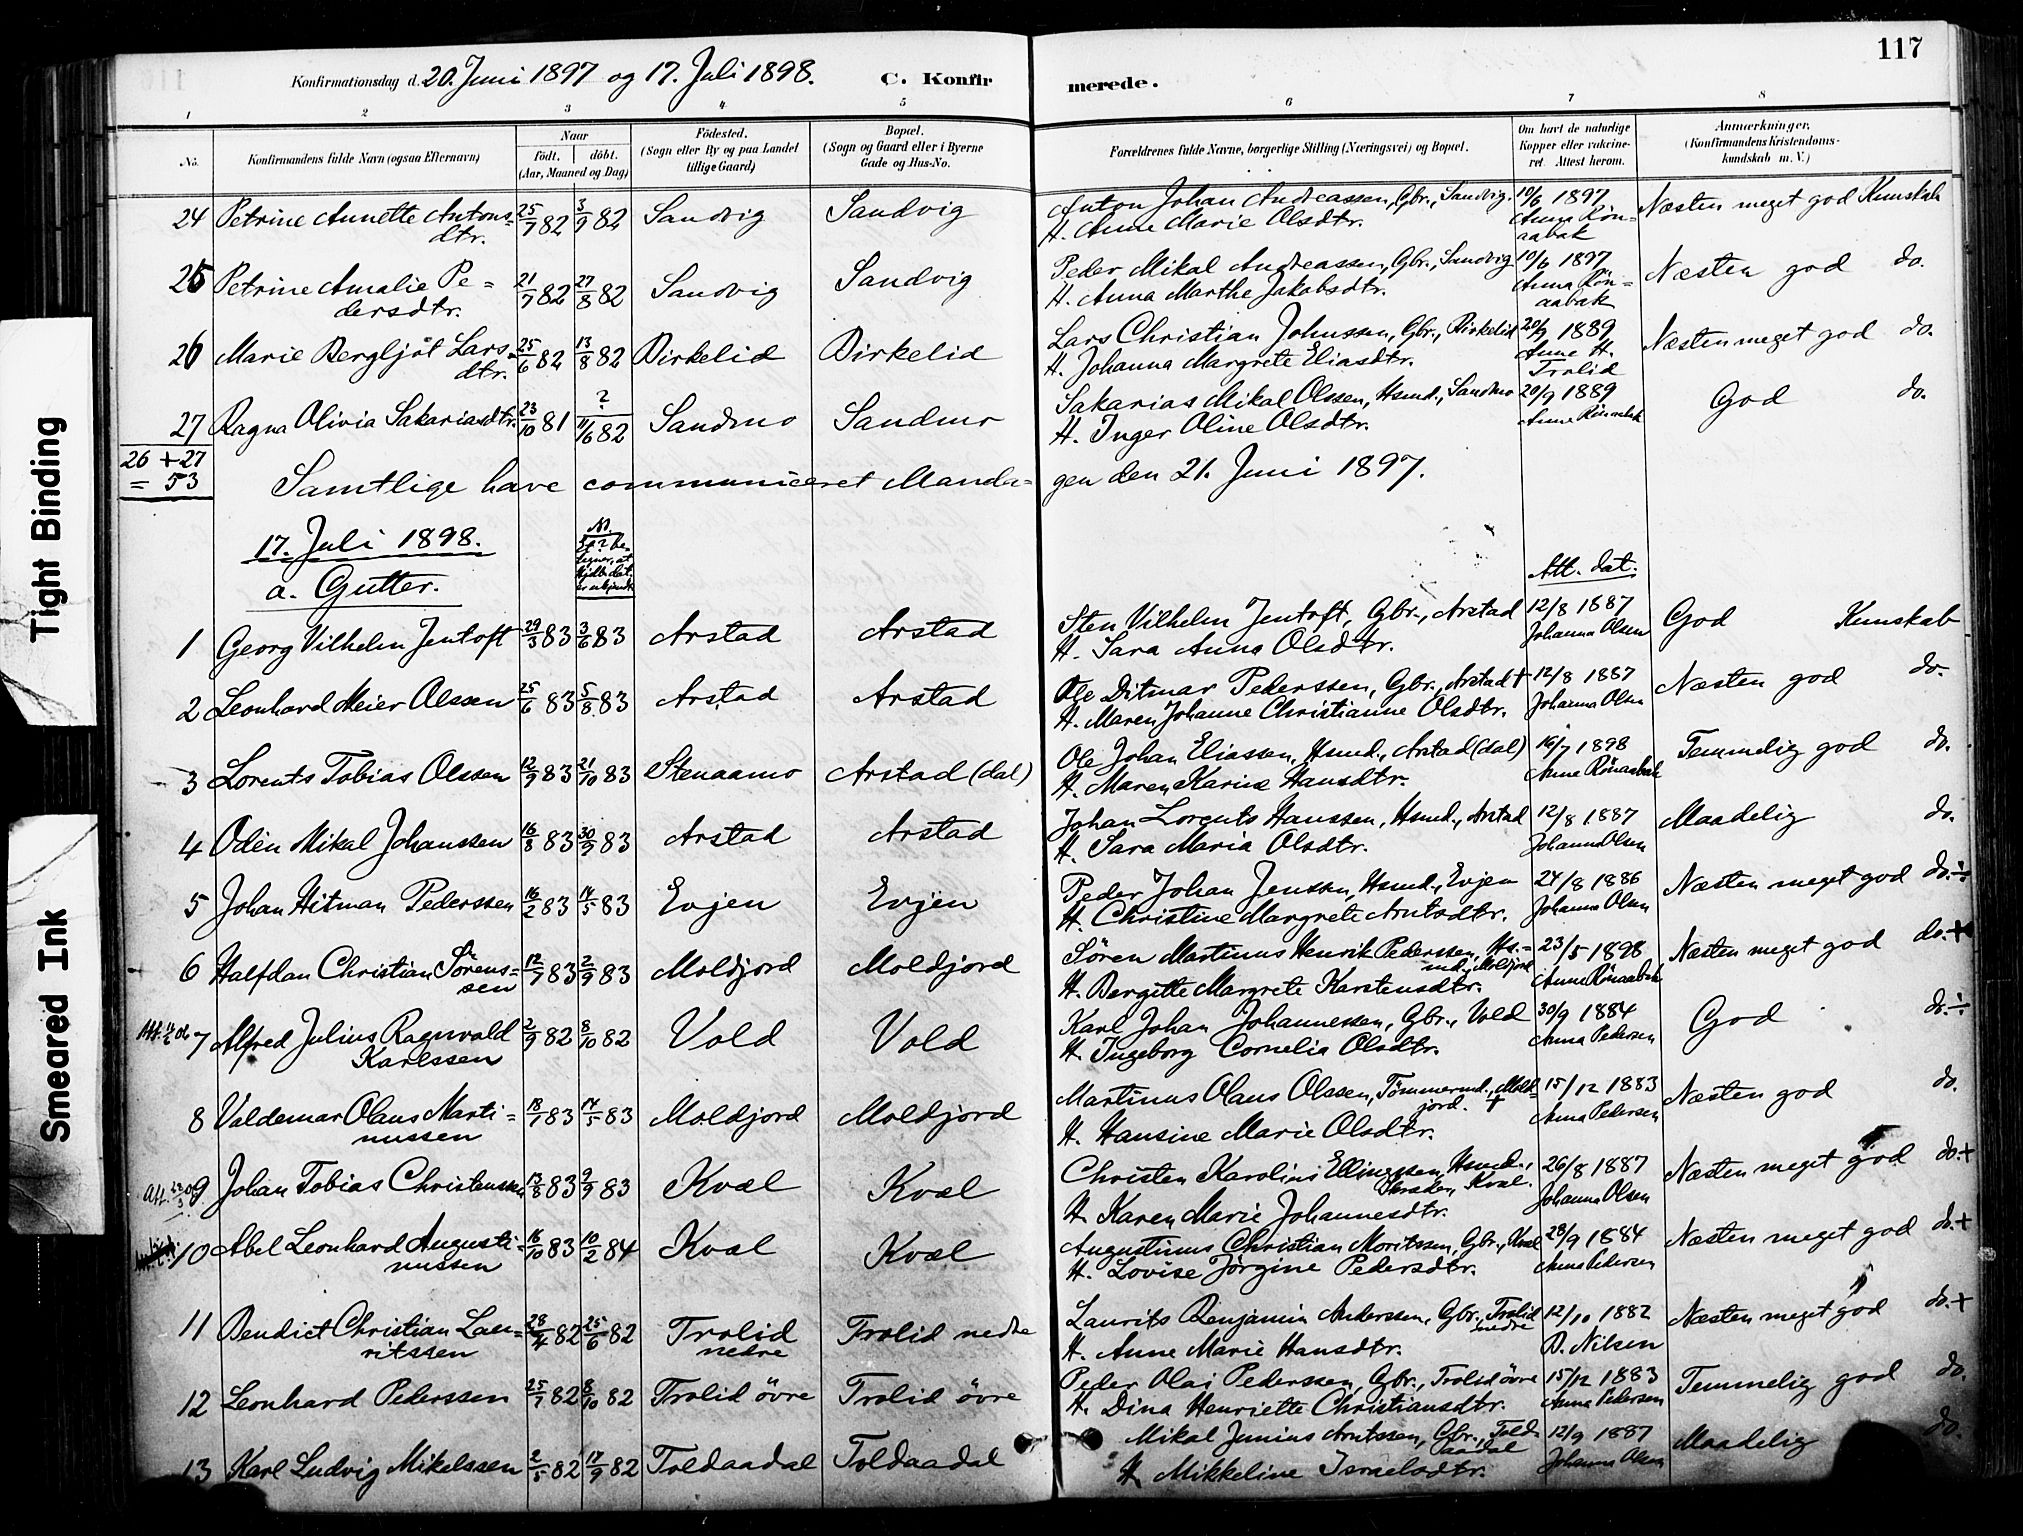 Konfirmationsdag d. 20. Juni 1897 og 17. Juli 1898. C. Konfirmerede. 117
1 2 3 4 5 6 7 8
No. Konfirmandens fulde Navn (ogsaa Efternavn) Naar födt. döbt. (Aar, Maaned og Dag) Födested. (Sogn eller By og paa Landet tillige Gaard) Bopæl. (Sogn og Gaard eller i Byerne Gade og Hus-No. Forældrenes fulde Navne, borgerlige Stilling (Næringsvei) og Bopæl. Om havt de naturlige Kopper eller vakcineret. Attest herom. Anmærkninger. (Konfirmandens Kristendomskundskab m. V.)
24 Petrine Annette Antons= 25/7 82 3/9 82 Sandvig Sandvig Anton Johan Andreassen, Gbr., Sandvig. 10/6 1897 Næsten meget god Kunskab
dtr. H. Anne Marie Olsdtr. Anna Rön=
aabak
25 Petrine Amalie Pe= 21/7 82 27/8 82 Sandvig Sandvig Peder Mikal Andreassen, Gbr., Sandvig 10/6 1897 Næsten god do.
dersdtr. H. Anna Marthe Jakobsdtr. Anna Rön=
aabak
26 Marie Bergljöt Lars= 25/6 82 13/8 82 Birkelid Birkelid Lars Christian Johnssen, Gbr., Birkelid 20/9 1889 Næsten meget god do.
dtr. H. Johanna Margrete Eliasdtr. Anne H.
Trolid
27 Ragna Olivia Sakariasdtr. 23/10 81 ?/11/6 82 Sandmo Sandmo Sakarias Mikal Olssen, Hsmd., Sandmo 20/9 1889 God do.
H. Inger Oline Olsdtr. Anne Rönaabak
26 + 27
= 53 Samtlige have communiceret Manda= gen den 21. Juni 1897.
17. Juli 1898.
a. Gutter. Att. dat.
1 Georg Vilhelm Jentoft 29/3 83 3/6 83 Arstad Arstad Sten Vilhelm Jentoft, Gbr., Arstad 12/8 1887 God Kunskab
H. Sara Anna Olsdtr. Johanna Olsen
2 Leonhard Meier Olssen 25/6 83 5/8 83 Arstad Arstad Ole Ditmar Pederssen, Gbr., Arstad + 12/8 1887 Næsten god do.
H. Maren Johanne Christianne Olsdtr. Johanna Olsen
3 Lorents Tobias Olssen 12/9 83 21/10 83 Stenaamo Arstad (dal) Ole Johan Eliassen, Hsmd., Arstad (dal) 16/7 1898 Temmelig god do.
H. Maren Karine Hansdtr. Anne Rönaabak
4 Odin Mikal Johanssen 16/8 83 30/9 83 Arstad Arstad Johan Lorents Hanssen, Hsmd., Arstad 12/8 1887 Maadelig do.
H. Sara Maria Olsdtr. Johanna Olsen
5 Johan Hitman Pederssen 16/2 83 14/5 83 Evjen Evjen Peder Johan Jenssen, Hsmd., Evjen 24/8 1886 Næsten meget god do. ÷
H. Christine Margrete Arntsdtr. Johanna Olsen
6 Halfdan Christian Sörens= 12/7 83 2/9 83 Moldjord Moldjord Sören Martinus Henrik Pederssen, Hs.= 23/5 1898 Næsten meget god do. +
sen md., Moldjord Anne Rönaabak
H. Bergitte Margrete Karstensdtr.
7 Alfred Julius Ragnvald 2/9 82 8/10 82 Vold Vold Karl Johan Johannessen, Gbr., Vold 30/9 1884 God do. ÷
Karlssen H. Ingeborg Cornelia Olsdtr. Anna Pedersen
8 Valdemar Olaus Marti= 18/1 83 14/5 83 Moldjord Moldjord Martinus Olaus Olssen, Tömmermd., Mold= 15/12 1883 Næsten god do.
nussen jord. + Anna Pedersen
H. Hansine Marie Olsdtr.
9 Johan Tobias Christenssen 13/8 83 9/9 83 Kval Kval Christen Karolius Ellingssen, Hsmd., 26/8 1887 Næsten meget god do. +
Kval. Johanna Olsen
H. Karen Marie Johannesdtr.
10 Abel Leonhard Augusti= 16/10 83 10/2 84 Kval Kval Augustinus Christian Moritssen, Gbr., Kval 28/9 1884 Næsten meget god do. +
nussen H. Lovise Jörgine Pedersdtr. Anna Pedersen
11 Bendict Christian Lau= 28/4 82 25/6 82 Trolid Trolid nedre Laurits Benjamin Anderssen, Gbr., Trolid 12/10 1882 Næsten meget god do. +
ritssen nedre nedre
H. Anne Marie Hansdtr. B. Nilsen
12 Leonhard Pederssen 25/7 82 8/10 82 Trolid övre Trolid övre Peder Olai Pederssen, Gbr., Trolid övre 15/12 1883 Temmelig god do.
H. Dina Henriette Christiansdtr. Anna Pedersen
13 Karl Ludvig Mikelssen 2/5 82 17/9 82 Toldaadal Toldaadal Mikal Junius Arntssen, Gbr., Told= 12/9 1887 Maadelig do.
aadal
H. Mikkeline Israelsdtr. Johanna Olsen
Tight Binding
Smeared Ink